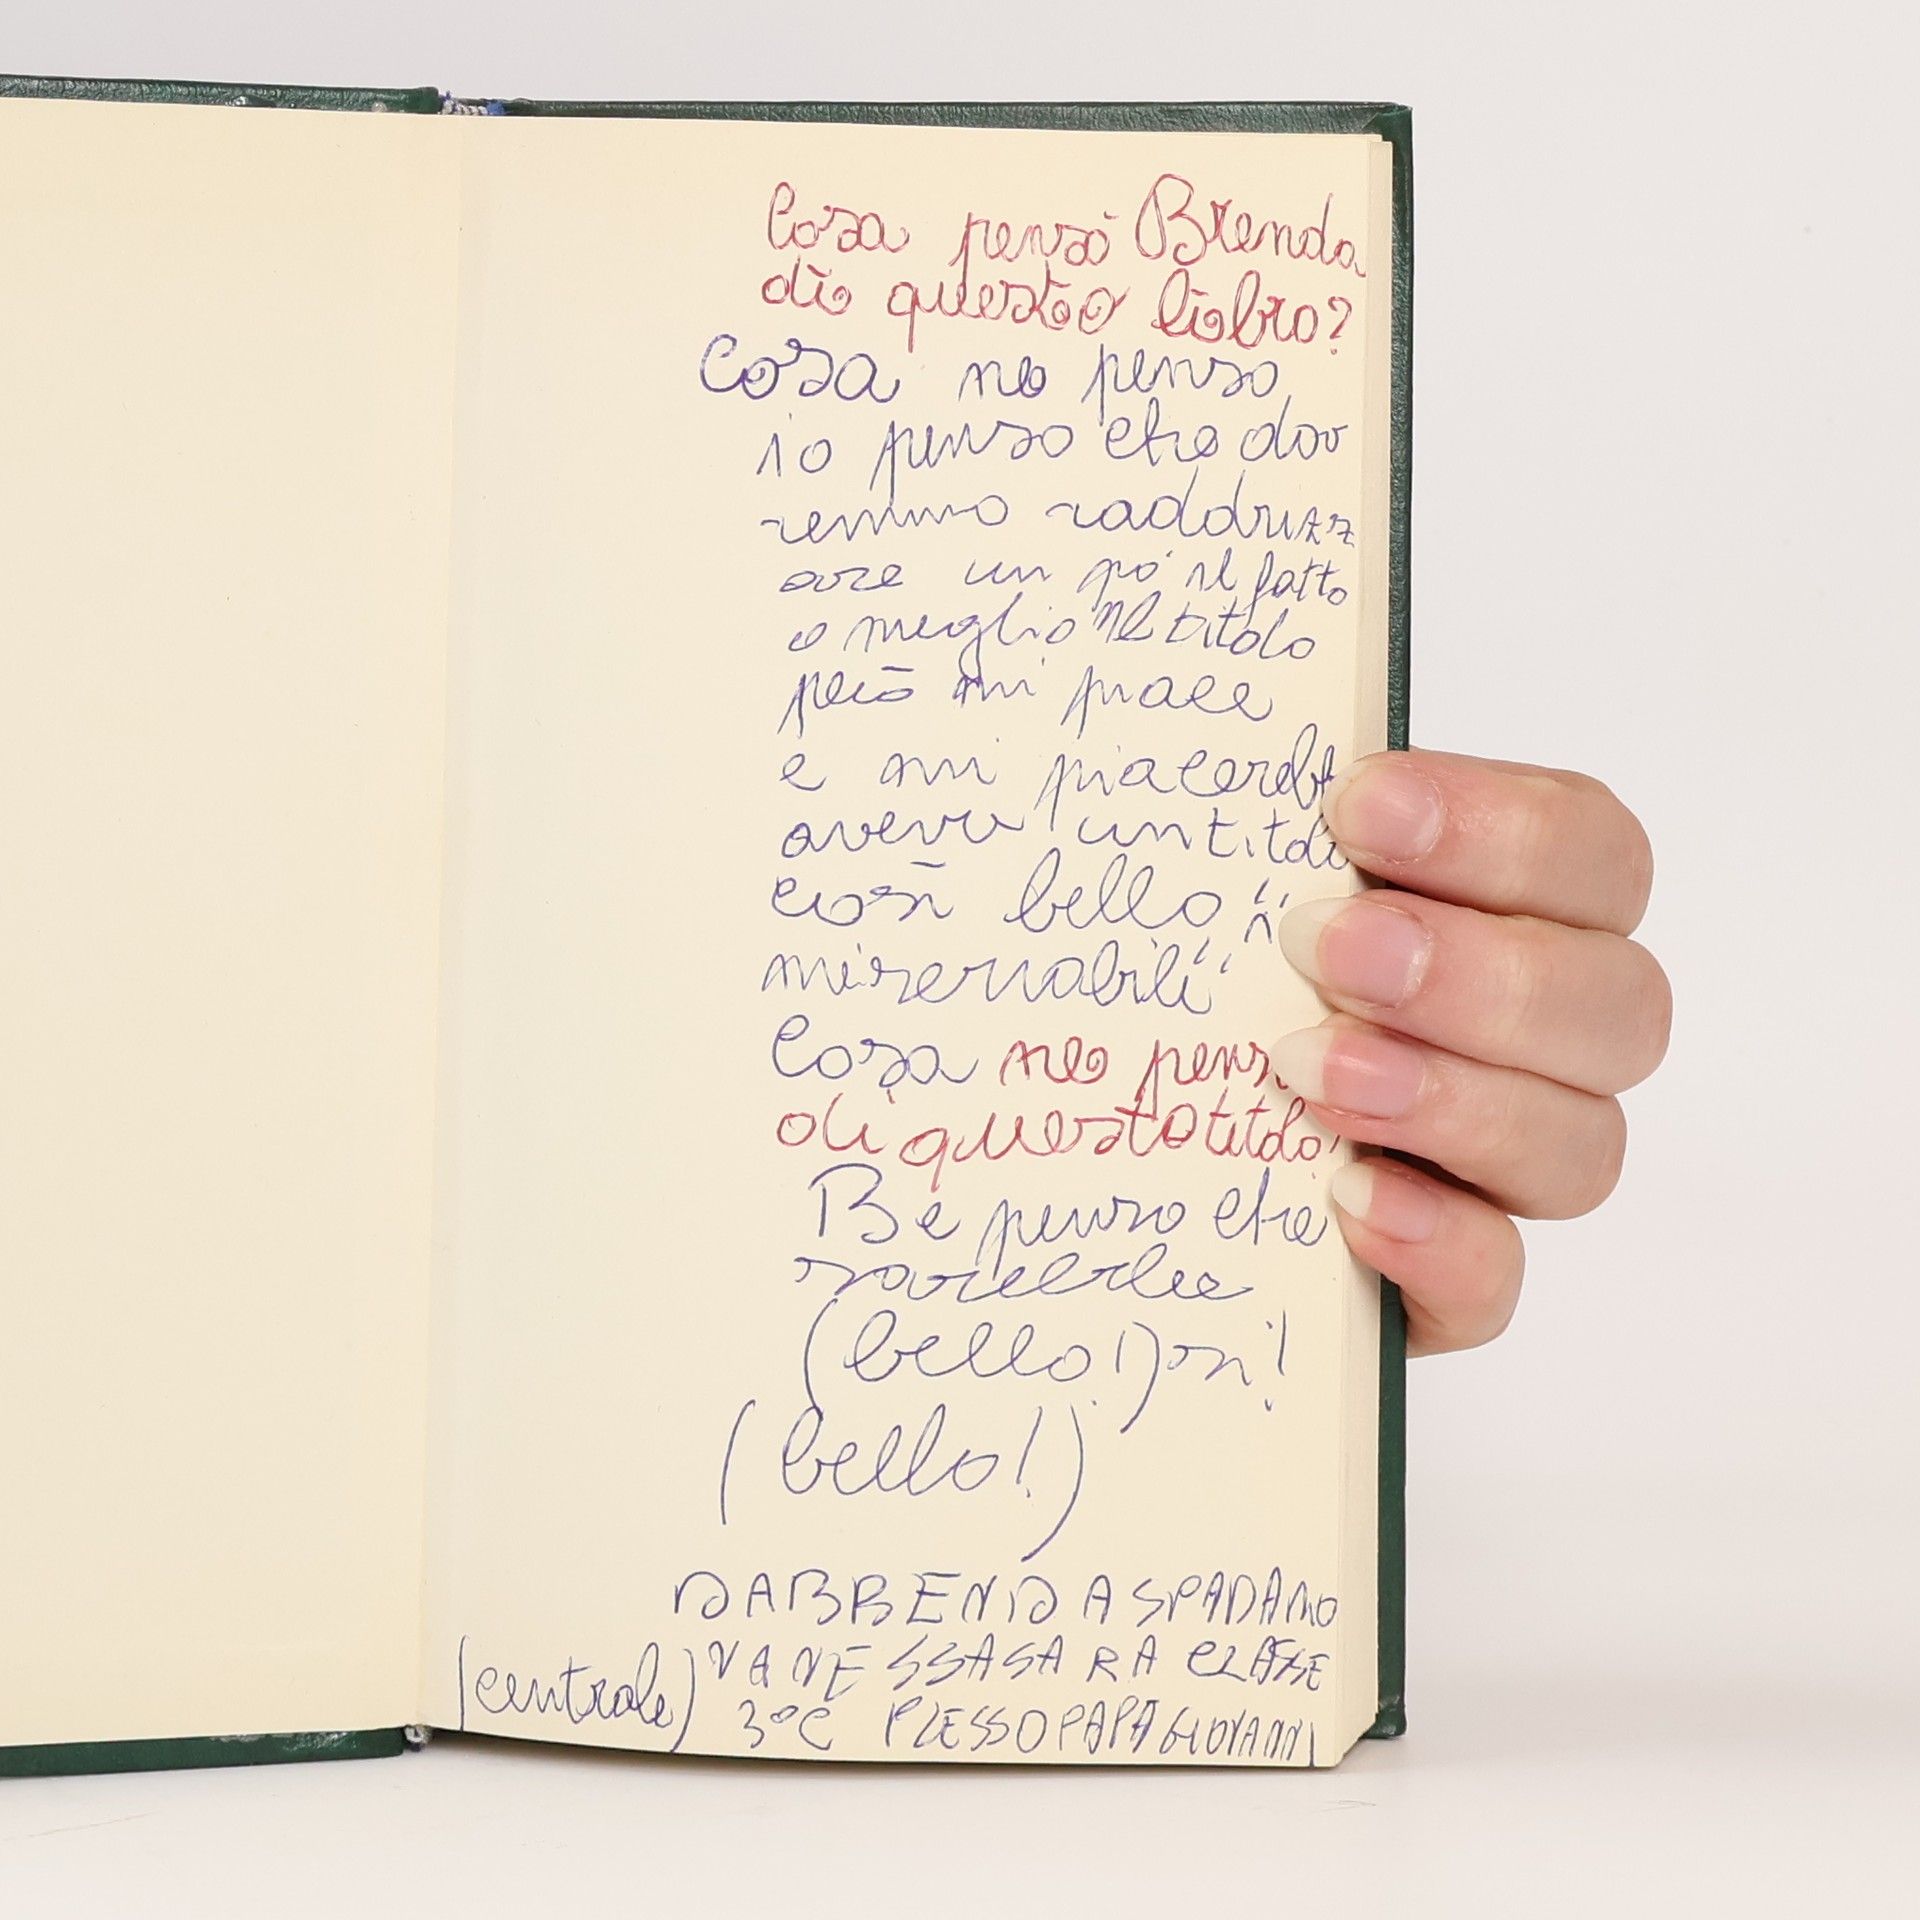 Cosa pensò Brenda
di questo libro?
Cosa ne penso
io penso che dov
remmo raddrizz
are un pó il fatto
o meglio il titolo
però mi piace
e mi piacereb
avere un titolo
così bello "i
miserabili"
Cosa ne pens
di questo titolo?
Be penso che
sarebbe
(bello!) si!
(bello!)
DA BRENDA SPADANO
VANESSA SARA CLASSE
(centrale) 3°C PLESSO PAPA GIOVANNI